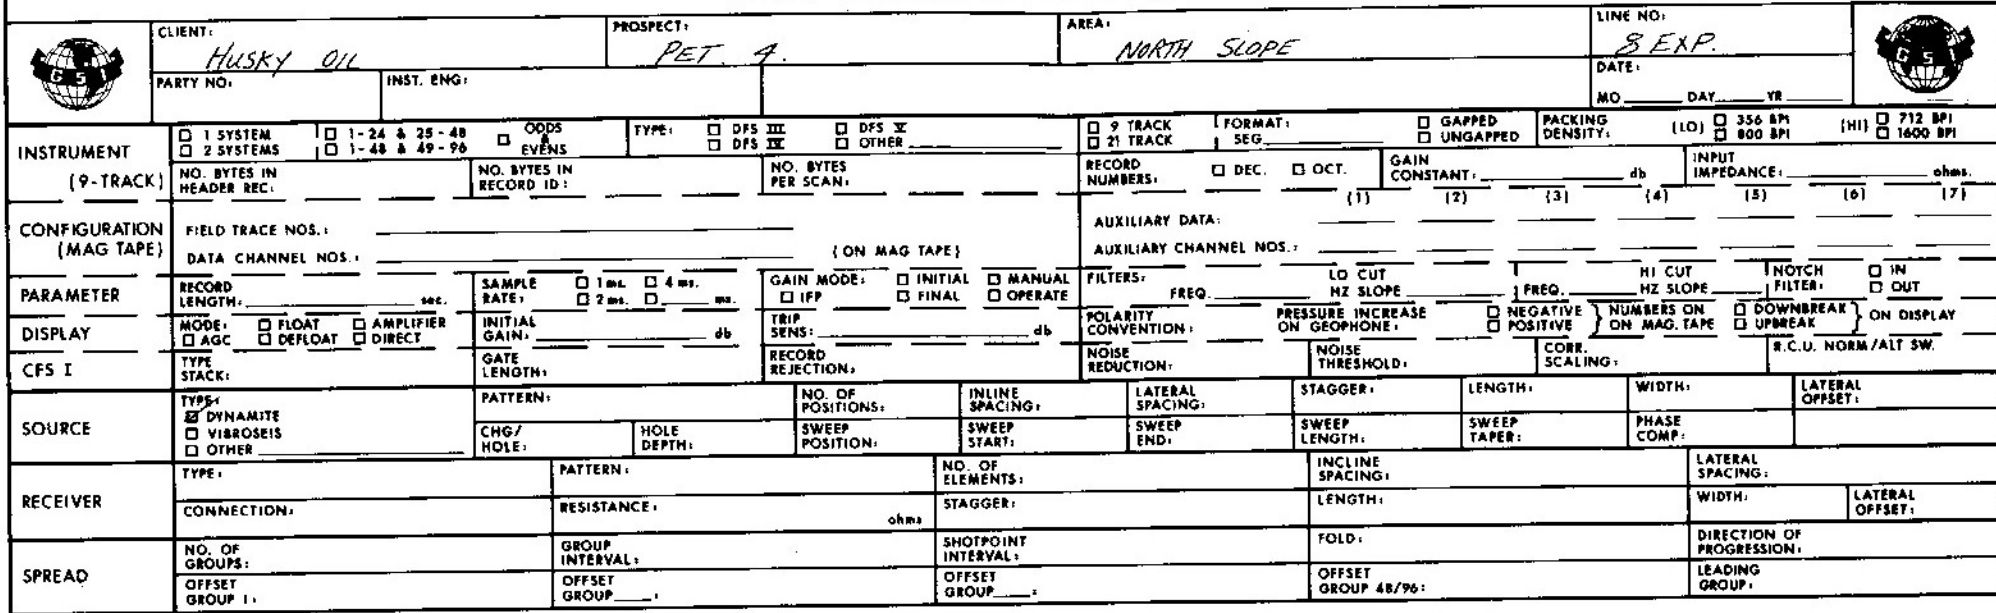 CLIENT: HUSKY OIL PROSPECT: PET. 4. AREA: NORTH SLOPE LINE NO: 8 EXP.
GSI
PARTY NO: INST. ENG: DATE:
MO DAY YR
GSI
INSTRUMENT
(9-TRACK)
☐ 1 SYSTEM ☐ 1-24 & 25-48 ☐ ODDS & EVENS TYPE: ☐ DFS III ☐ DFS V ☐ 9 TRACK FORMAT: ☐ GAPPED PACKING DENSITY: (LO) ☐ 356 BPI (HI) ☐ 712 BPI
☐ 2 SYSTEMS ☐ 1-48 & 49-96 ☐ DFS IV ☐ OTHER ☐ 21 TRACK SEG ☐ UNGAPPED ☐ 800 BPI ☐ 1600 BPI
NO. BYTES IN HEADER REC: NO. BYTES IN RECORD ID: NO. BYTES PER SCAN: RECORD NUMBERS: ☐ DEC. ☐ OCT. GAIN CONSTANT: db INPUT IMPEDANCE: ohms.
CONFIGURATION
(MAG TAPE)
(1) (2) (3) (4) (5) (6) (7)
FIELD TRACE NOS.: AUXILIARY DATA:
DATA CHANNEL NOS.: (ON MAG TAPE) AUXILIARY CHANNEL NOS.:
PARAMETER
RECORD LENGTH: sec. SAMPLE RATE: ☐ 1 ms. ☐ 4 ms. ☐ 2 ms. ☐ ms. GAIN MODE: ☐ INITIAL ☐ MANUAL ☐ IFP ☐ FINAL ☐ OPERATE FILTERS: LO CUT FREQ. HZ SLOPE HI CUT FREQ. HZ SLOPE NOTCH FILTER: ☐ IN ☐ OUT
DISPLAY
MODE: ☐ FLOAT ☐ AMPLIFIER ☐ AGC ☐ DEFLOAT ☐ DIRECT INITIAL GAIN: db TRIP SENS: db POLARITY CONVENTION: PRESSURE INCREASE ON GEOPHONE: ☐ NEGATIVE ☐ POSITIVE } NUMBERS ON ON MAG. TAPE ☐ DOWNBREAK ☐ UPBREAK } ON DISPLAY
CFS I
TYPE STACK: GATE LENGTH: RECORD REJECTION: NOISE REDUCTION: NOISE THRESHOLD: CORR. SCALING: R.C.U. NORM/ALT SW.
SOURCE
TYPE: PATTERN: NO. OF POSITIONS: INLINE SPACING: LATERAL SPACING: STAGGER: LENGTH: WIDTH: LATERAL OFFSET:
☑ DYNAMITE
☐ VIBROSEIS
☐ OTHER
CHG/ HOLE: HOLE DEPTH: SWEEP POSITION: SWEEP START: SWEEP END: SWEEP LENGTH: SWEEP TAPER: PHASE COMP:
RECEIVER
TYPE: PATTERN: NO. OF ELEMENTS: INCLINE SPACING: LATERAL SPACING:
CONNECTION: RESISTANCE: ohms STAGGER: LENGTH: WIDTH: LATERAL OFFSET:
SPREAD
NO. OF GROUPS: GROUP INTERVAL: SHOTPOINT INTERVAL: FOLD: DIRECTION OF PROGRESSION:
OFFSET GROUP 1: OFFSET GROUP : OFFSET GROUP : OFFSET GROUP 48/96: LEADING GROUP: